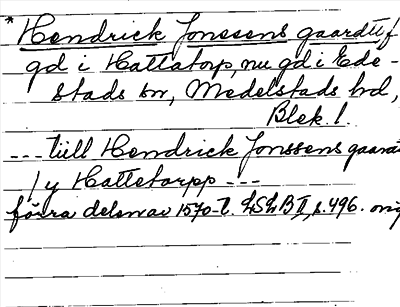 * Hendrick Jonssens gaardtif
gd i Hattatorp, nu gd i Ede-
stads sn, Medelstads hd,
Blek. l.
--- till Hendrick Jonssens gaard
/ y Hattetorpp ---
förra delen av 1570-t. LSLB II, s. 496. orig